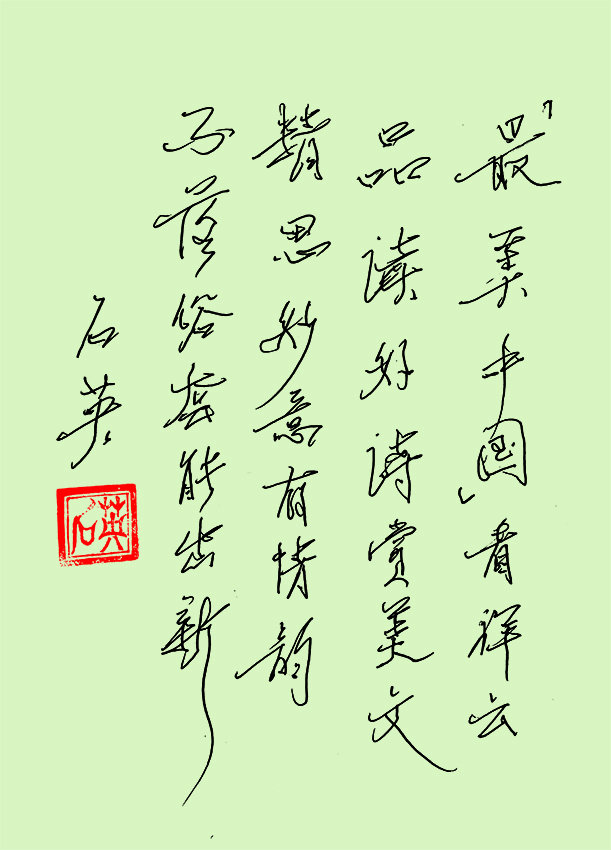 「最美中国」看祥云
品读好诗赏美文
精思妙意有情韵
不落俗套能出新
石英
石英